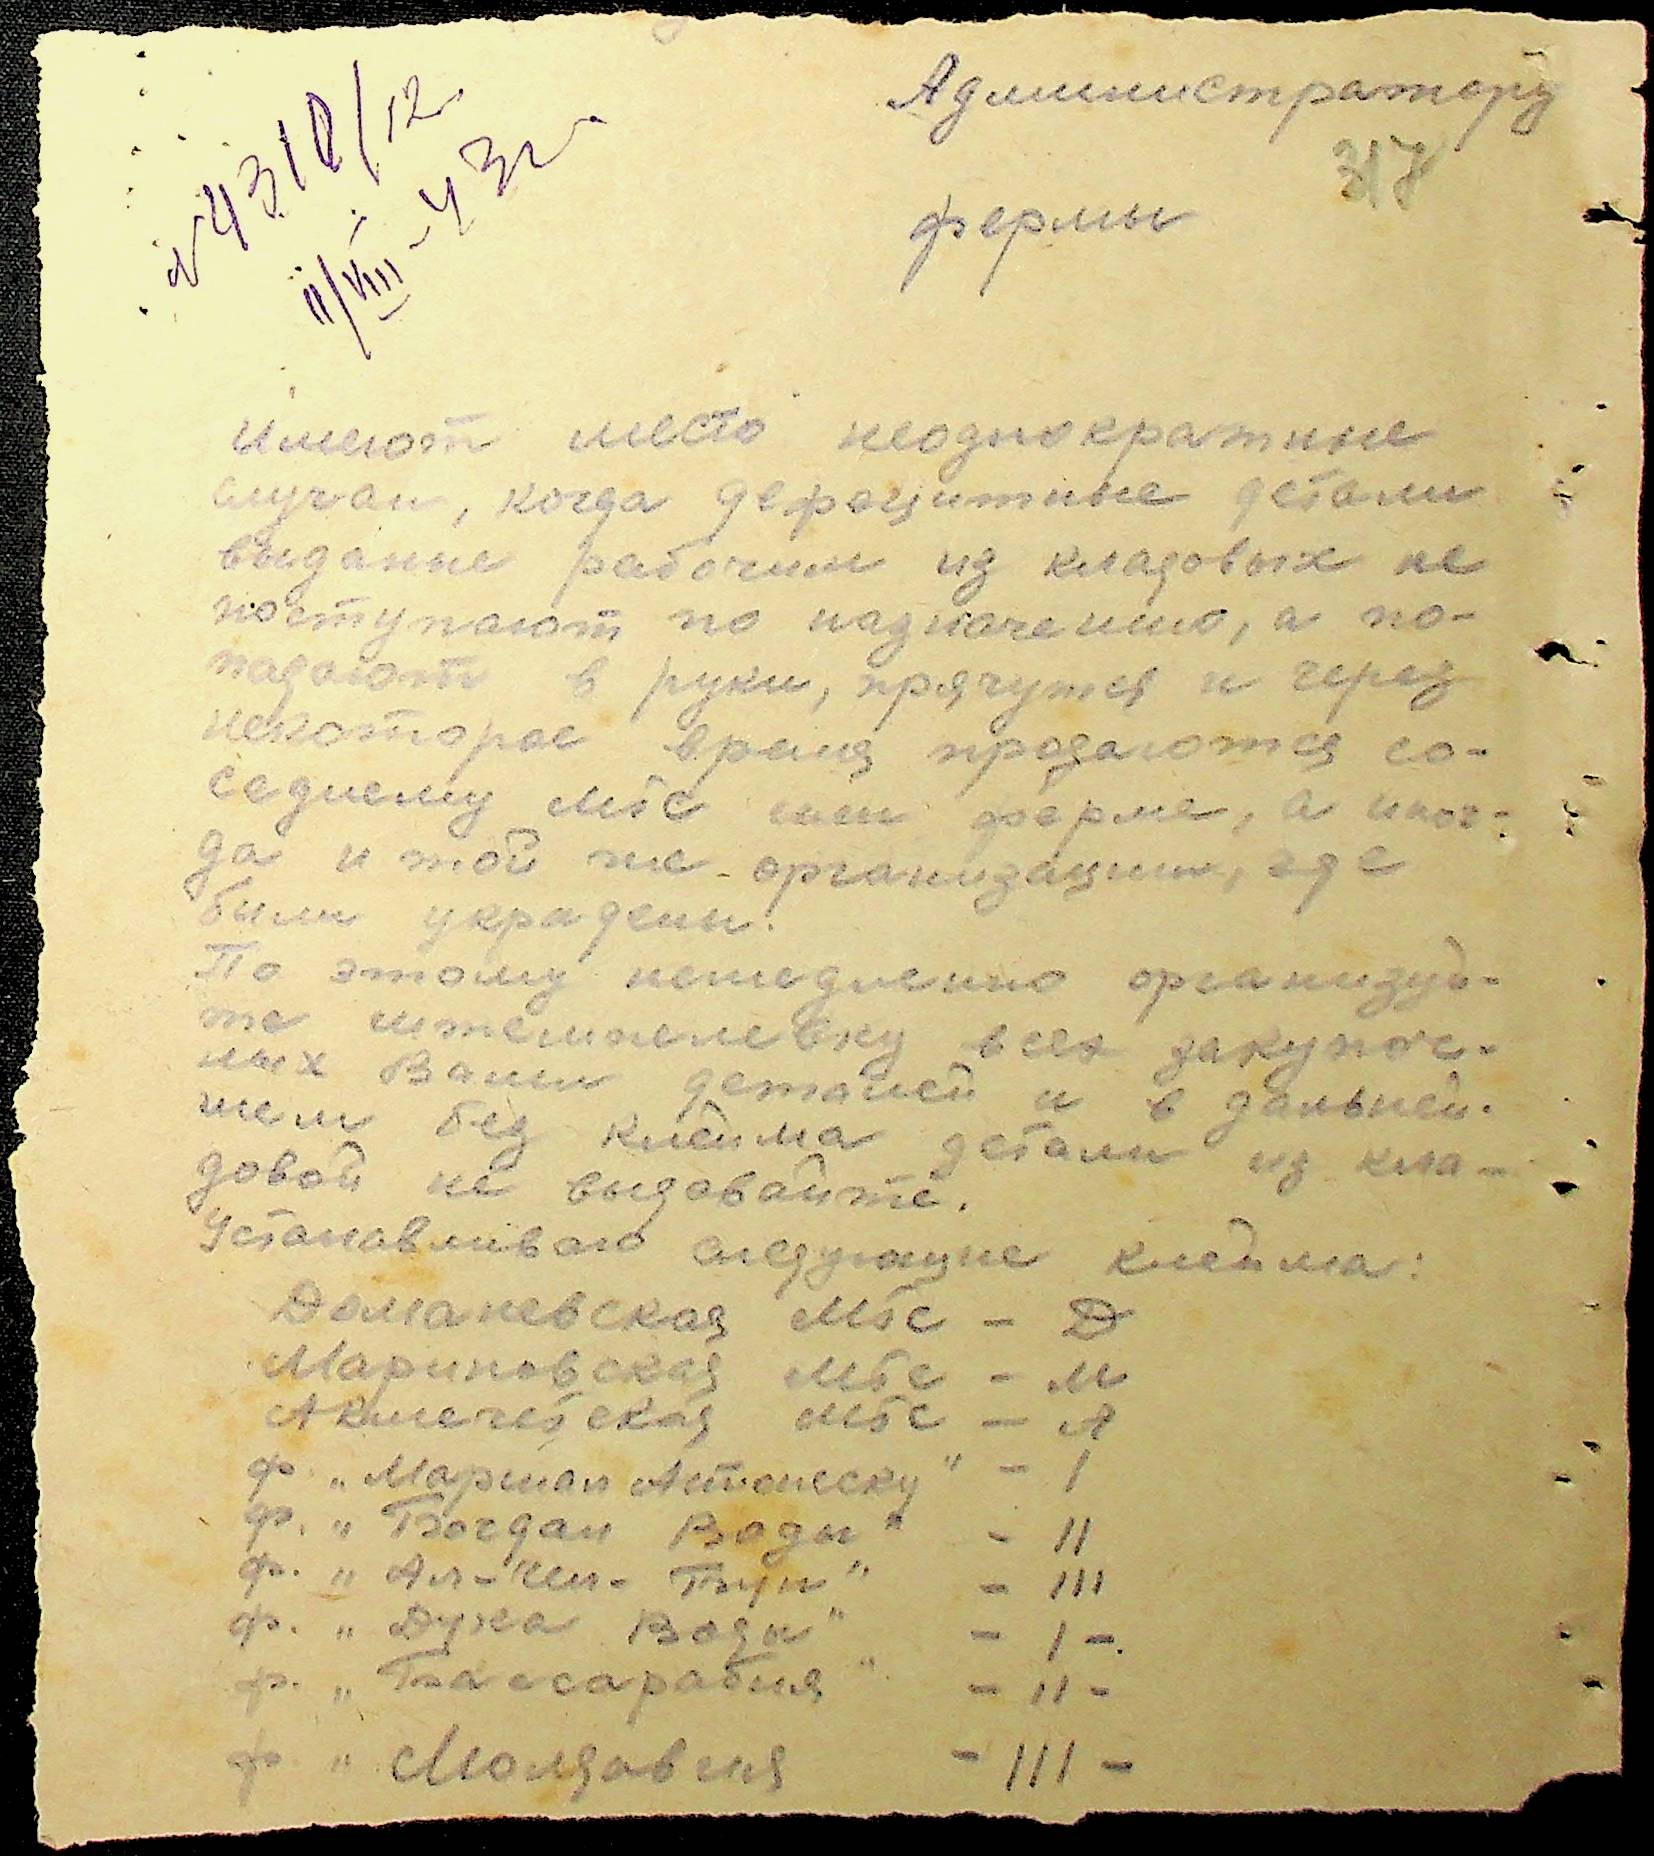 Администратору
317
фермы
№ 4310/12
11/VIII-43г.
Имеют место неоднократные
случаи, когда дефецитные детали
выданые рабочим из кладовых не
поступают по назначению, а по-
падают в руки, прячутся и через
некоторое время продаются со-
седнему МТС или ферме, а иног-
да и той же организации, где
были украдены.
По этому немедленно организуй-
те штемпелевку всех закупоч-
ных Вами деталей и в дальней-
шем без клейма детали из кла-
довой не выдовайте.
Устанавливаю следующие клейма:
Доманевская МТС - Д
Мариновская МТС - М
Акмечетская МТС - А
ф. „Маршал Антонеску" - I
ф. „Богдан Водэ" - II
ф. „Ал-Чел-Бун" - III
ф. „Дука Водэ" - I -.
ф. „Бессарабия" - II -
ф. „Молдавия - III -